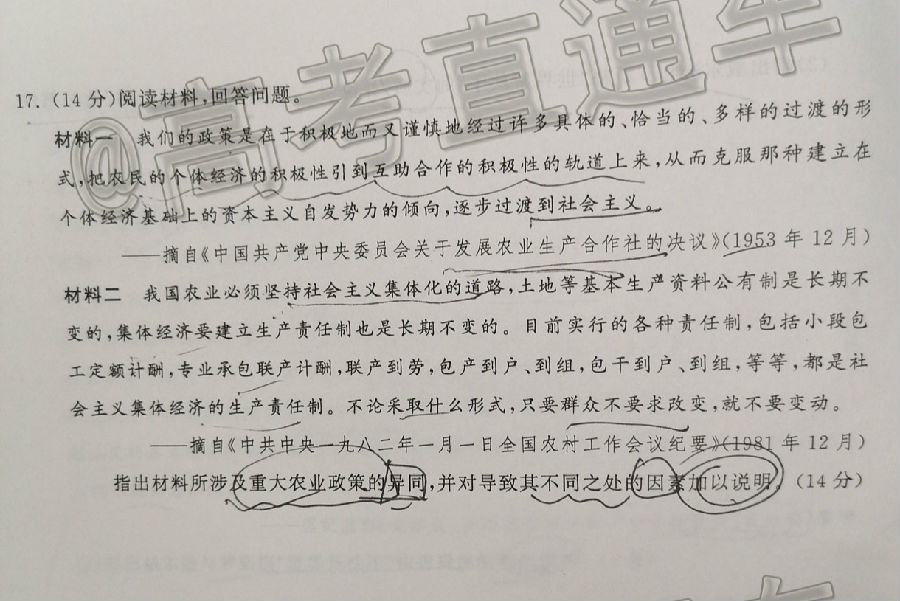 @高考直通车
17.(14分)阅读材料,回答问题。
材料一 我们的政策是在于积极地而又谨慎地经过许多具体的、恰当的、多样的过渡的形
式,把农民的个体经济的积极性引到互助合作的积极性的轨道上来,从而克服那种建立在
个体经济基础上的资本主义自发势力的倾向,逐步过渡到社会主义。
——摘自《中国共产党中央委员会关于发展农业生产合作社的决议》(1953年12月)
材料二 我国农业必须坚持社会主义集体化的道路,土地等基本生产资料公有制是长期不
变的,集体经济要建立生产责任制也是长期不变的。目前实行的各种责任制,包括小段包
工定额计酬,专业承包联产计酬,联产到劳,包产到户、到组,包干到户、到组,等等,都是社
会主义集体经济的生产责任制。不论采取什么形式,只要群众不要求改变,就不要变动。
——摘自《中共中央一九八二年一月一日全国农村工作会议纪要》(1981年12月)
指出材料所涉及重大农业政策的异同,并对导致其不同之处的因素加以说明。(14分)